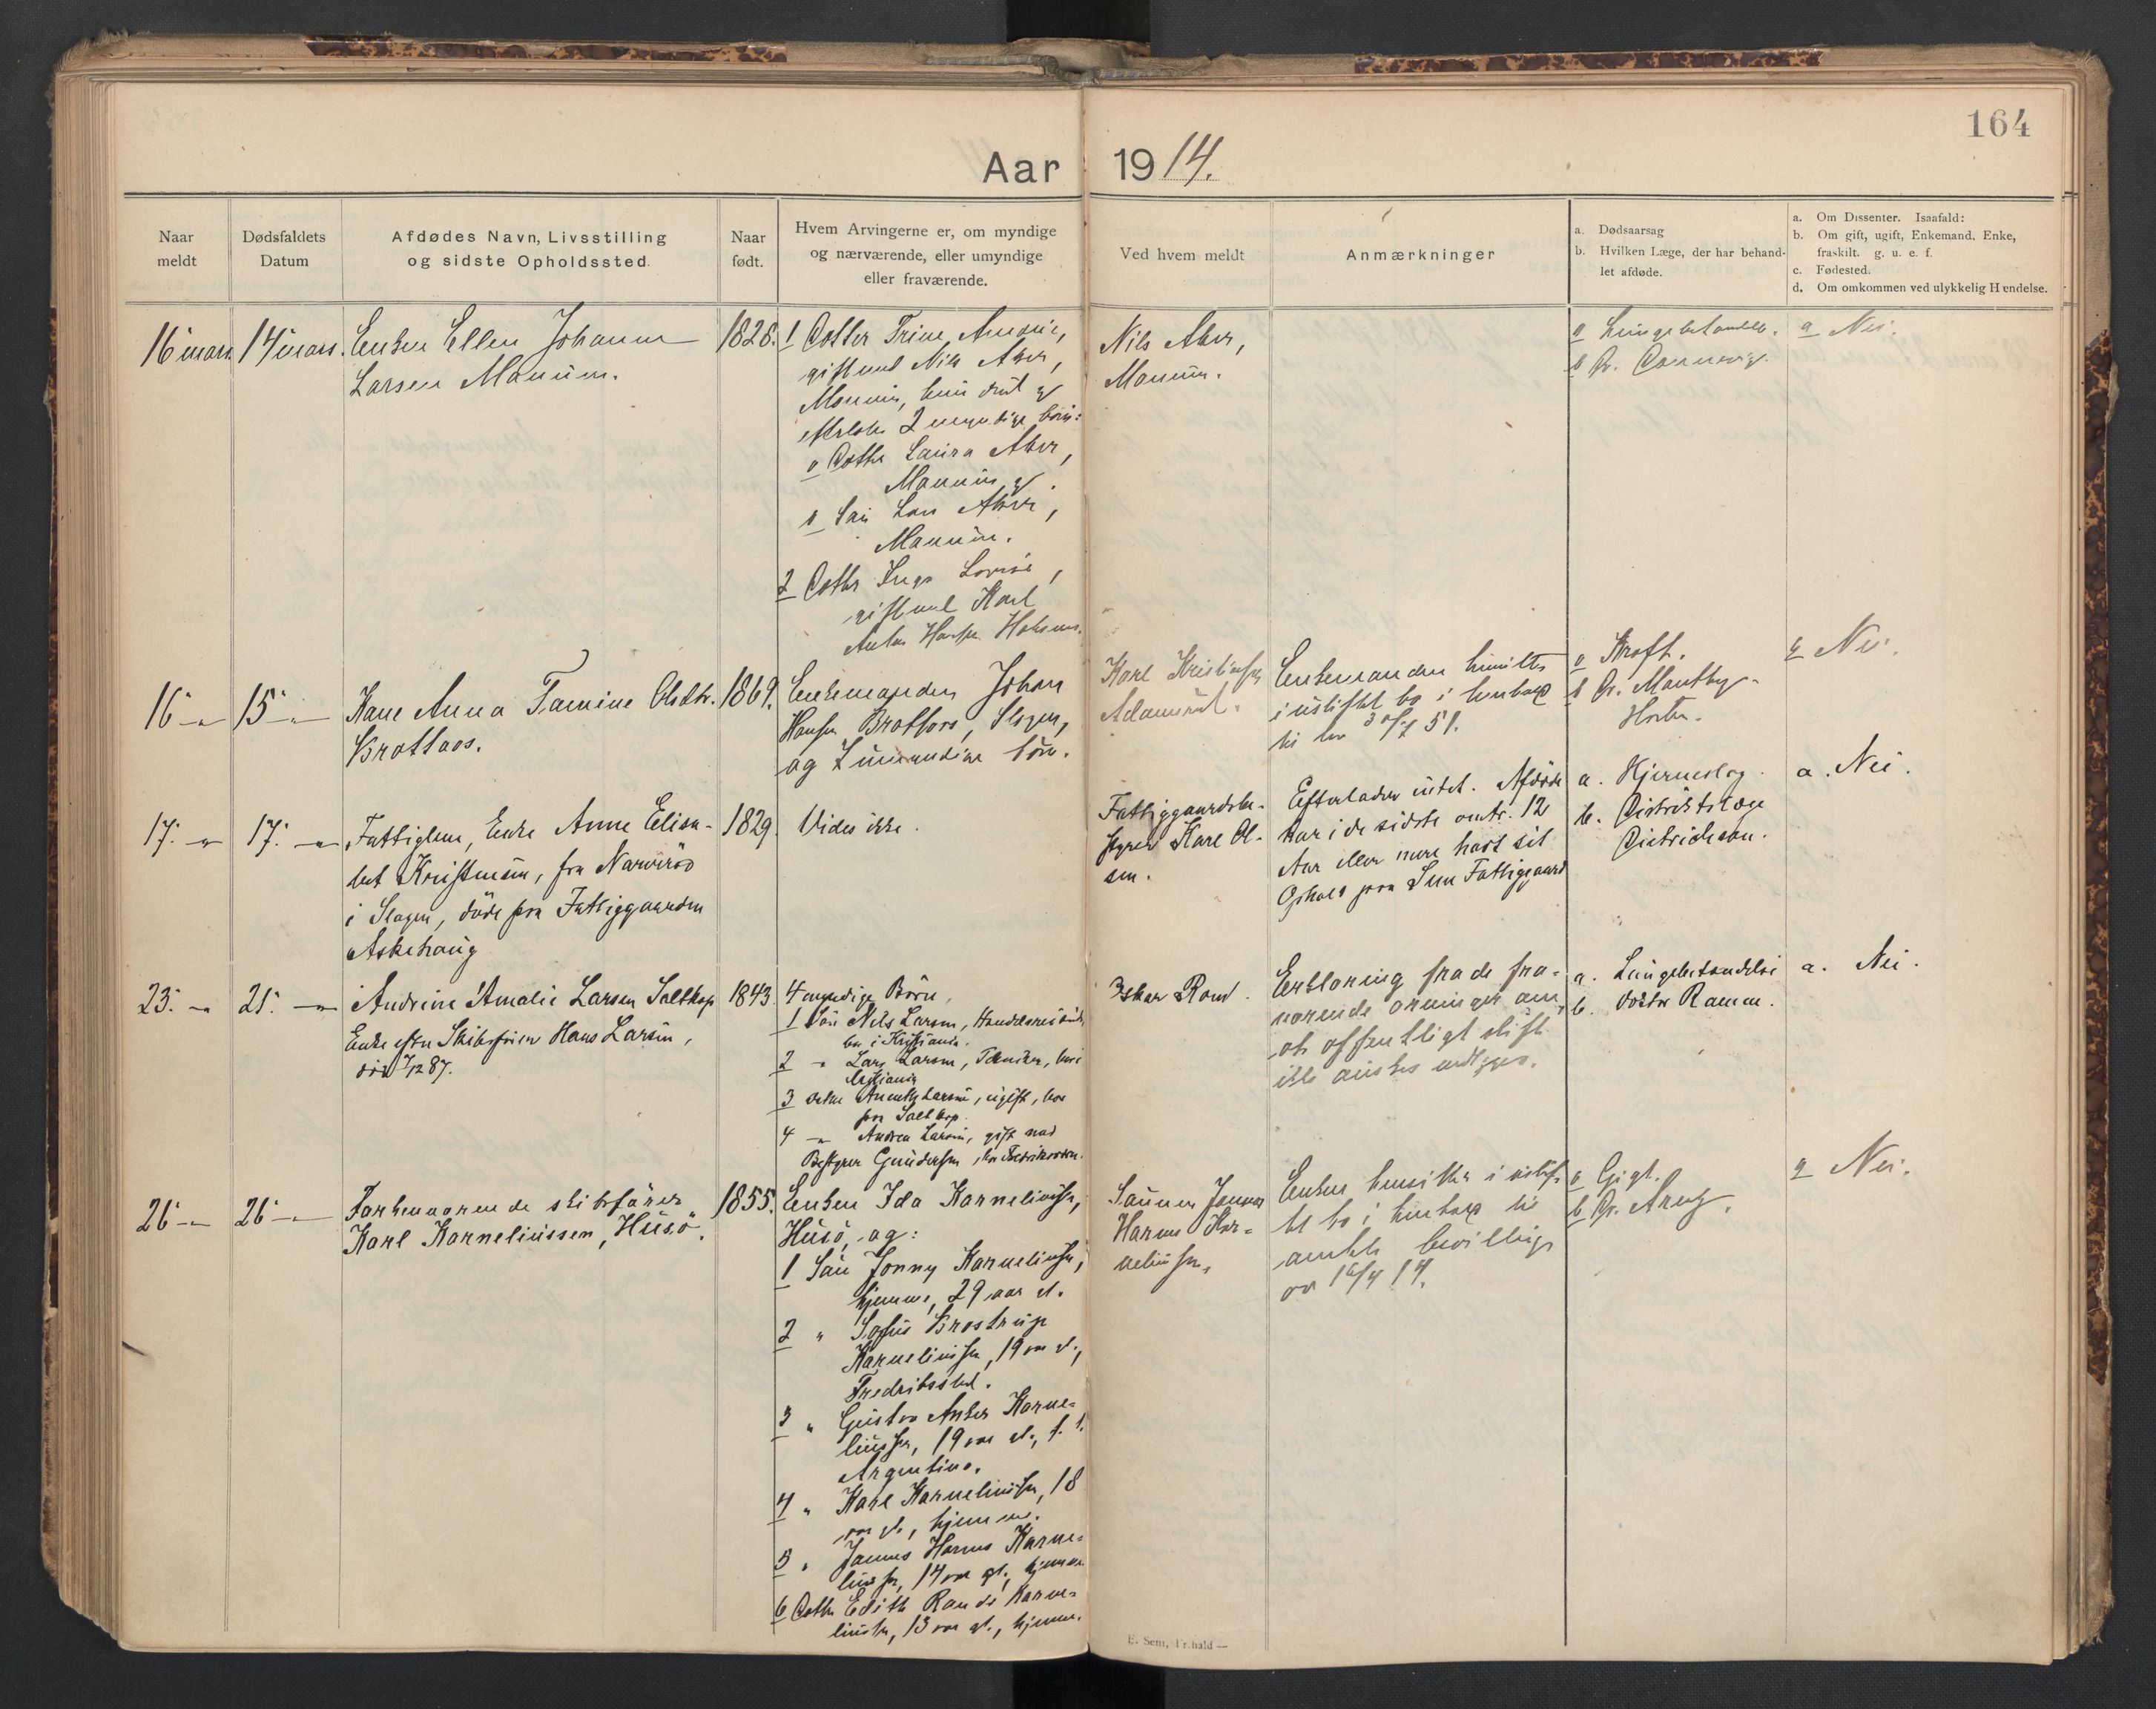 164
Aar 1914.
Naar meldt
Dødsfaldets Datum
Afdødes Navn, Livsstilling og sidste Opholdssted.
Naar født.
Hvem Arvingerne er, om myndige og nærværende, eller umyndige eller fraværende.
Ved hvem meldt
Anmærkninger
a. Dødsaarsag
b. Hvilken Læge, der har behandlet afdøde.
a. Om Dissenter. Isaafald:
b. Om gift, ugift, Enkemand. Enke, fraskilt. g. u. e. f.
c. Fødested.
d. Om omkommen ved ulykkelig Hændelse.
16 mars. 14 mars. Enken Ellen Johanne
Larsen Manum.
1828.
1 Datter Trine Amalie,
gift med Nils Aker,
Manum, hun død og
efterlater 2 umyndige børn:
a Datter Laura Aker,
Manum, og
b Søn Lars Aker,
Manum.
2 Datter Inga Lovise,
gift med Karl
Anton Hansen
Nils Aker,
Manum.
a Lungebetændelse.
b Dr.
a Nei.
16 15 Kone Anna Tamine Olsdtr.
Brottaas.
1869.
Enkemanden Johan
Hansen Brotfoss, Slagen,
og 7 umyndige børn.
Karl Kristiansen
Adamsrød.
Enkemanden hensitter
i uskiftet bo i henhold
til lov 30/7 51.
a Kræft.
b Dr. Manthey
Horten.
a Nei.
17. 17. Fattiglem, Enke Anne Elisa-
bet Kristensen, fra Narverød
i Slagen, døde paa Fattiggaarden
Askehaug
1829.
Vides ikke.
Fattiggaardsbe-
styrer Karl Ol-
sen.
Efterlader intet. Afdøde
har i de sidste omtr. 12
Aar eller mere havt sit
Ophold paa Sem Fattiggaard
a. Hjerneslag.
b. Distriktslæge
Dietrichson.
a. Nei.
23. 21. Andrine Amalie Larsen Saltkop
Enke efter Skibsfører Hans Larsen,
død 7/12 87.
1843.
4 myndige Børn,
1 Søn Nils Larsen, Handelsreisende,
bor i Kristiania.
2 " Lars Larsen, Tekniker, bor i
Kristiania
3 Datter Larsen, ugift, bor
paa Saltkop.
4 Andrea Larsen, gift med
Bestyrer Gundersen, bor
Oskar Rom.
Erklæring fra de fra-
værende arvinger om
at offentligt skifte
ikke ønskes
a. Lungebetændelse
b. Doktor Ramm.
a. Nei.
26 26 Forhenværende skibsfører
Karl Karneliussen, Husø.
1855.
Enken Ida Karneliussen,
Husø, og:
1 Søn Jonny Karneliussen,
hjemme, 29 aar gl.
2 " Sofus Brostrup
Karneliussen, 19 aar gl.,
Fredrikstad.
3 " Gustav Anker Karne-
liussen, 19 aar gl., f. t.
Argentina.
4 " Karl Karneliussen, 18
aar gl., hjemme.
5 " Jannes Harms Karne-
liussen, 14 aar gl., hjemme
6 Datter Edith Karne-
liussen, 13 aar gl., hjemme.
Sønnen Jannes
Harms Kar-
neliussen,
Enken hensitter i uskif-
tet bo i henhold til
amtets bevilling
av 16/4 14.
a Gigt.
b Dr.
a Nei.
E. Sem, Fr.hald